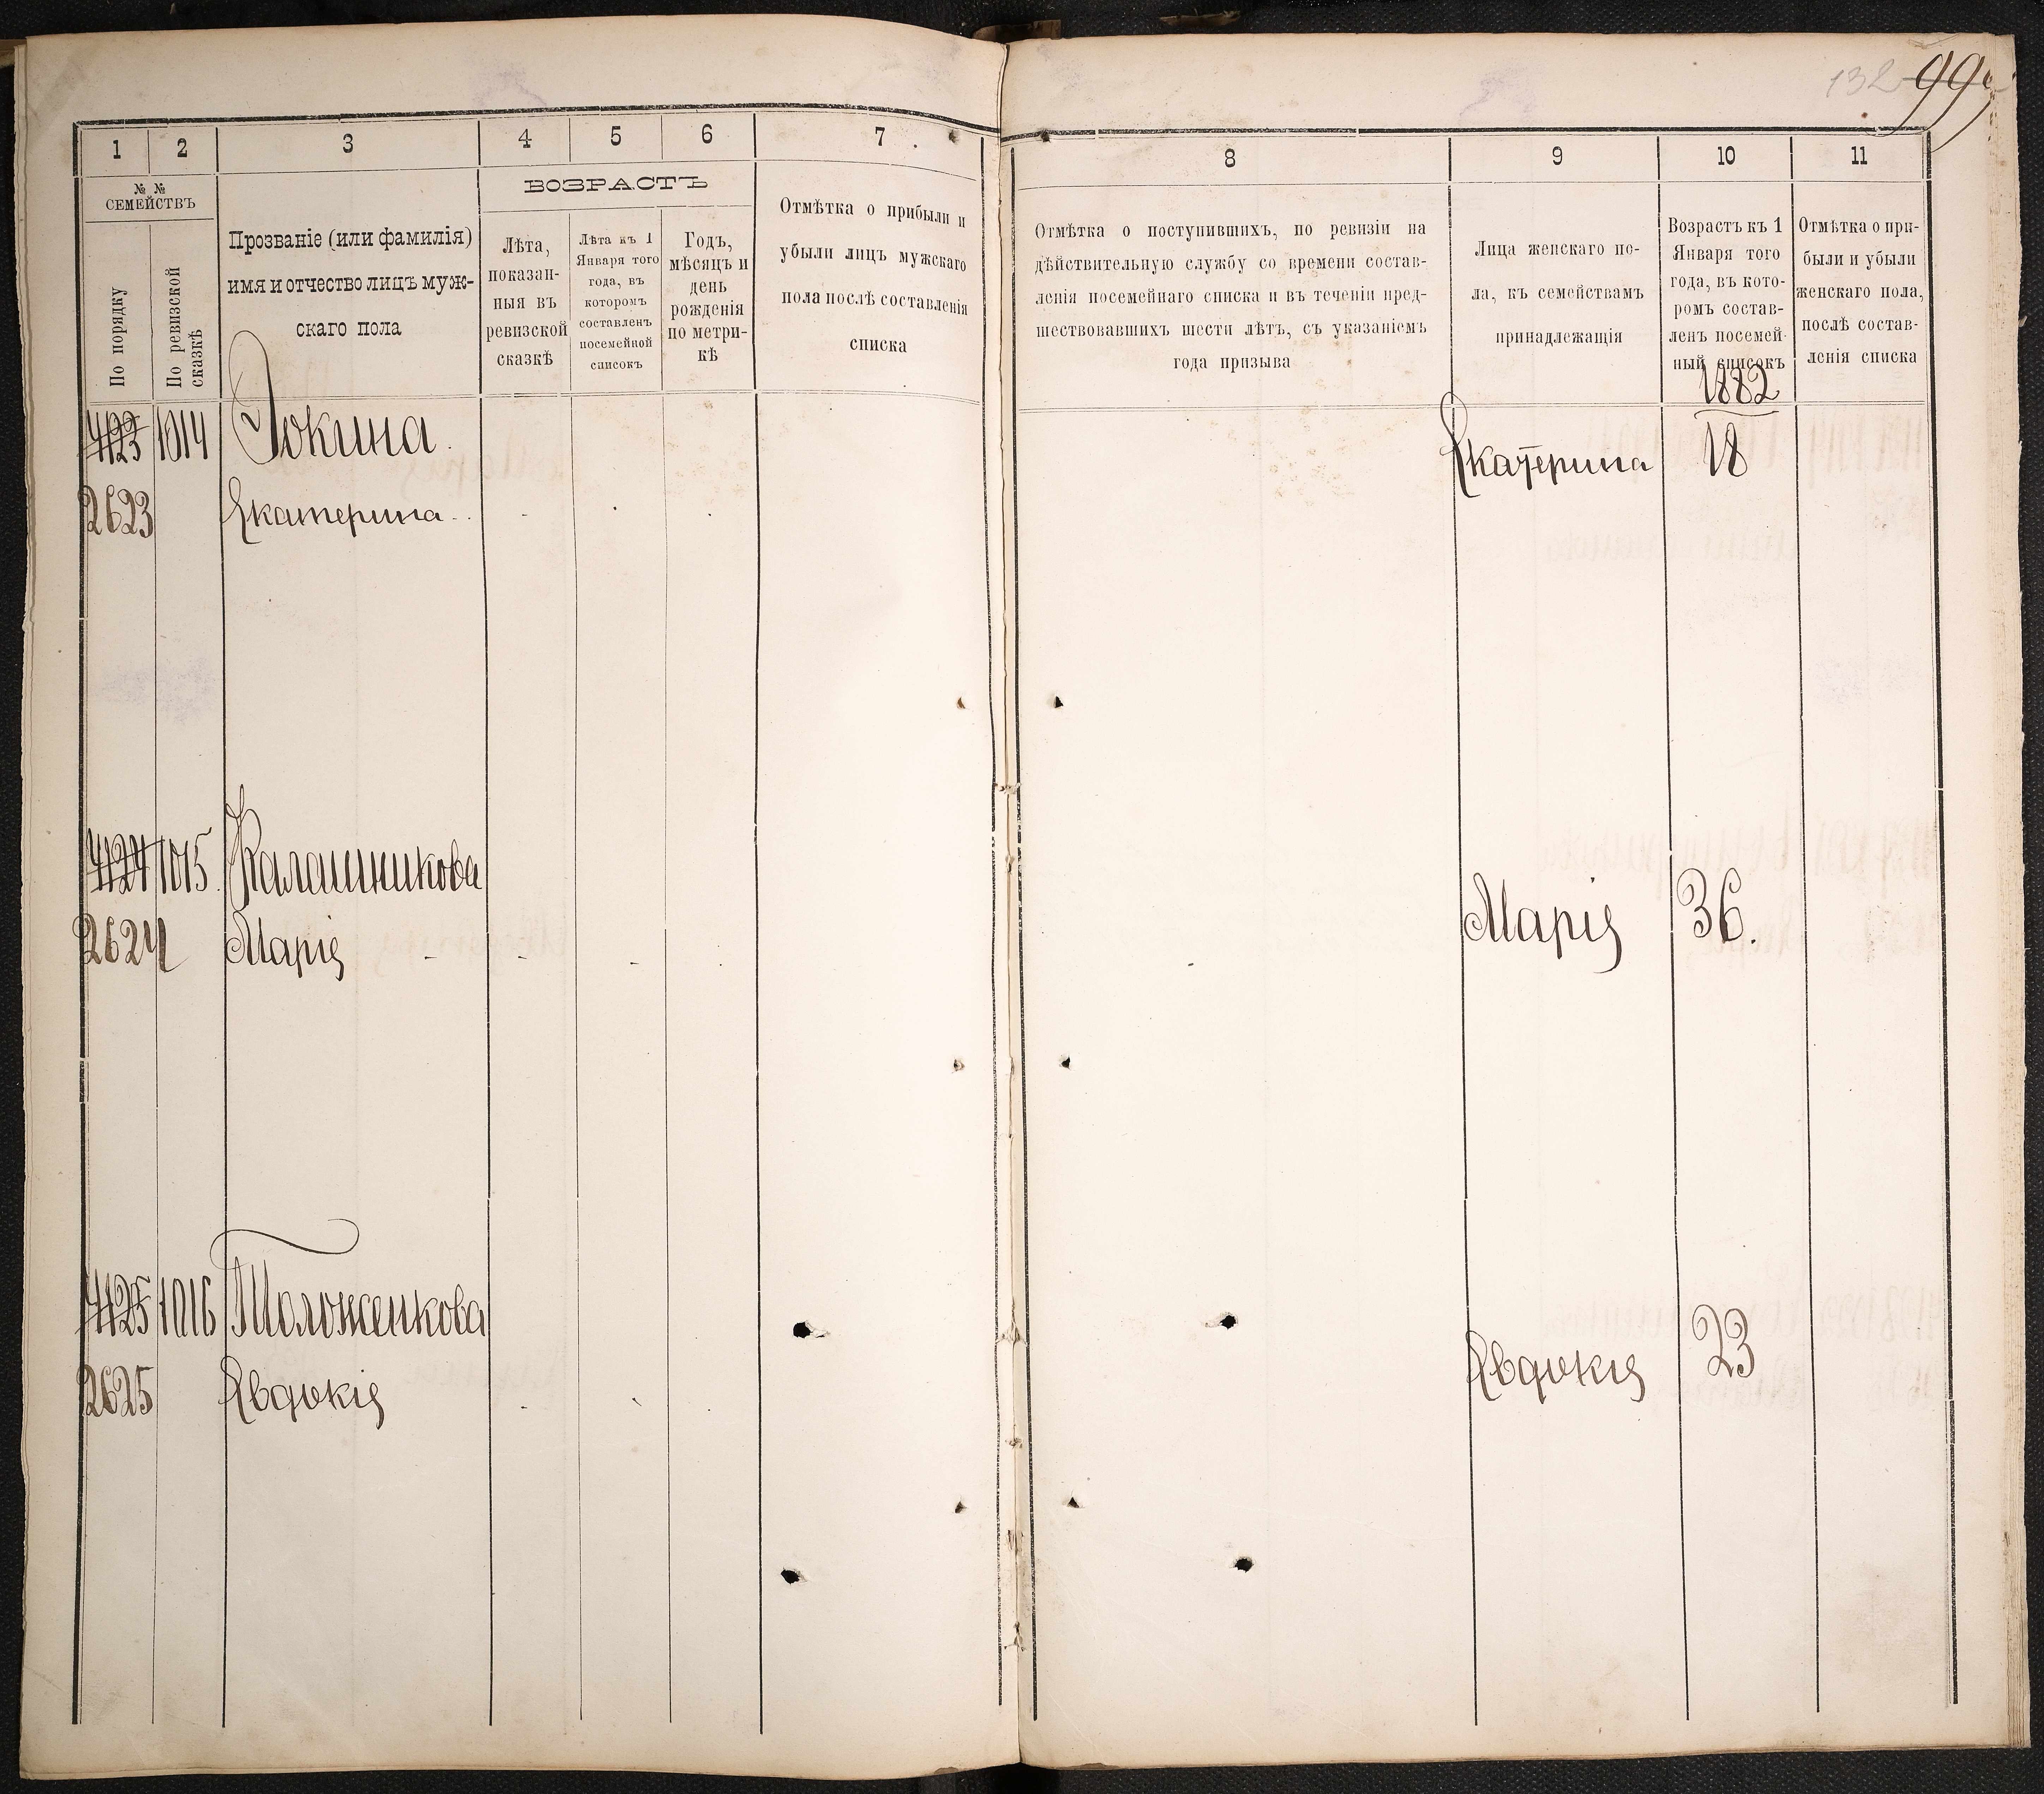 132 99
1 2 3 4 5 6 7
№ № СЕМЕЙСТВЪ
По порядку
По ревизской сказкѣ
Прозваніе (или фамилія)
имя и отчество лицъ муж-
скаго пола
ВОЗРАСТЪ
Лѣта,
показан-
ныя въ
ревизской
сказкѣ
Лѣта къ 1
Января того
года, въ
которомъ
составленъ
посемейной
списокъ
Годъ,
мѣсяцъ и
день
рожденія
по метри-
кѣ
Отмѣтка о прибыли и
убыли лицъ мужскаго
пола послѣ составленія
списка
8 9 10 11
Отмѣтка о поступившихъ, по ревизіи на
дѣйствительную службу со времени состав-
ленія посемейнаго списка и въ теченіи пред-
шествовавшихъ шести лѣтъ, съ указаніемъ
года призыва
Лица женскаго по-
ла, къ семействамъ
принадлежащія
Возрастъ къ 1
Января того
года, въ кото-
ромъ состав-
ленъ посемей-
ный списокъ
1882
Отмѣтка о при-
были и убыли
женскаго пола,
послѣ состав-
ленія списка
4123 1014
2623 Екатерина
Екатерина 18
4124 1015 Калашникова
2624 Марія
Марія 36.
4125 1016
2625 Евдокія
Евдокія 23